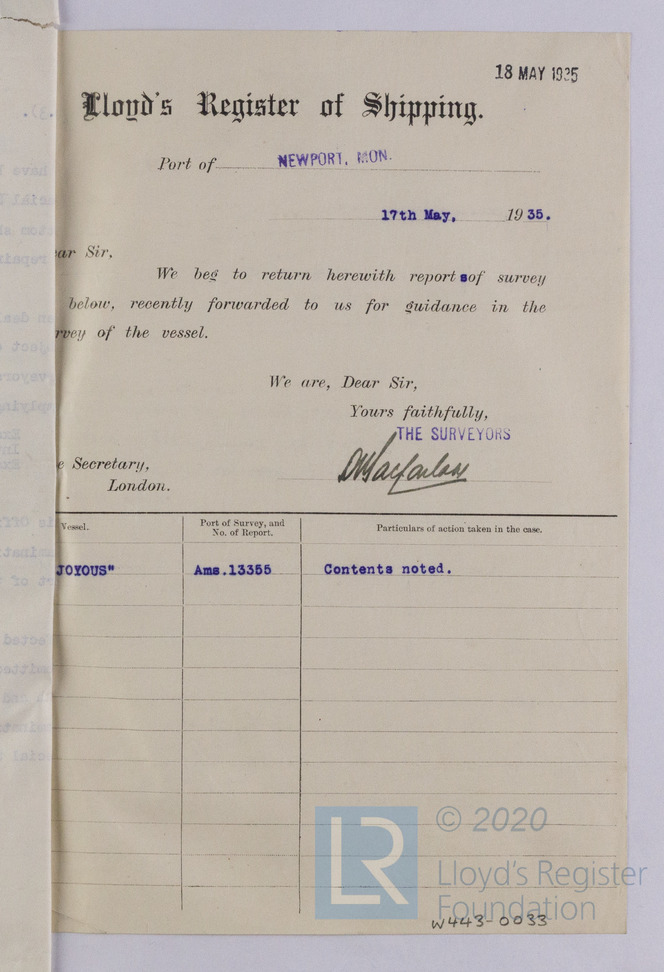 18 MAY 1935
Lloyd's Register of Shipping.
Port of NEWPORT, MON.
17th May, 1935.
ar Sir,
We beg to return herewith reports of survey
below, recently forwarded to us for guidance in the
rvey of the vessel.
We are, Dear Sir,
Yours faithfully,
THE SURVEYORS
e Secretary,
London.
Vessel. Port of Survey, and No. of Report. Particulars of action taken in the case.
JOYOUS" Ams.13355 Contents noted.
LR
© 2020
Lloyd's Register
Foundation
W443-0033